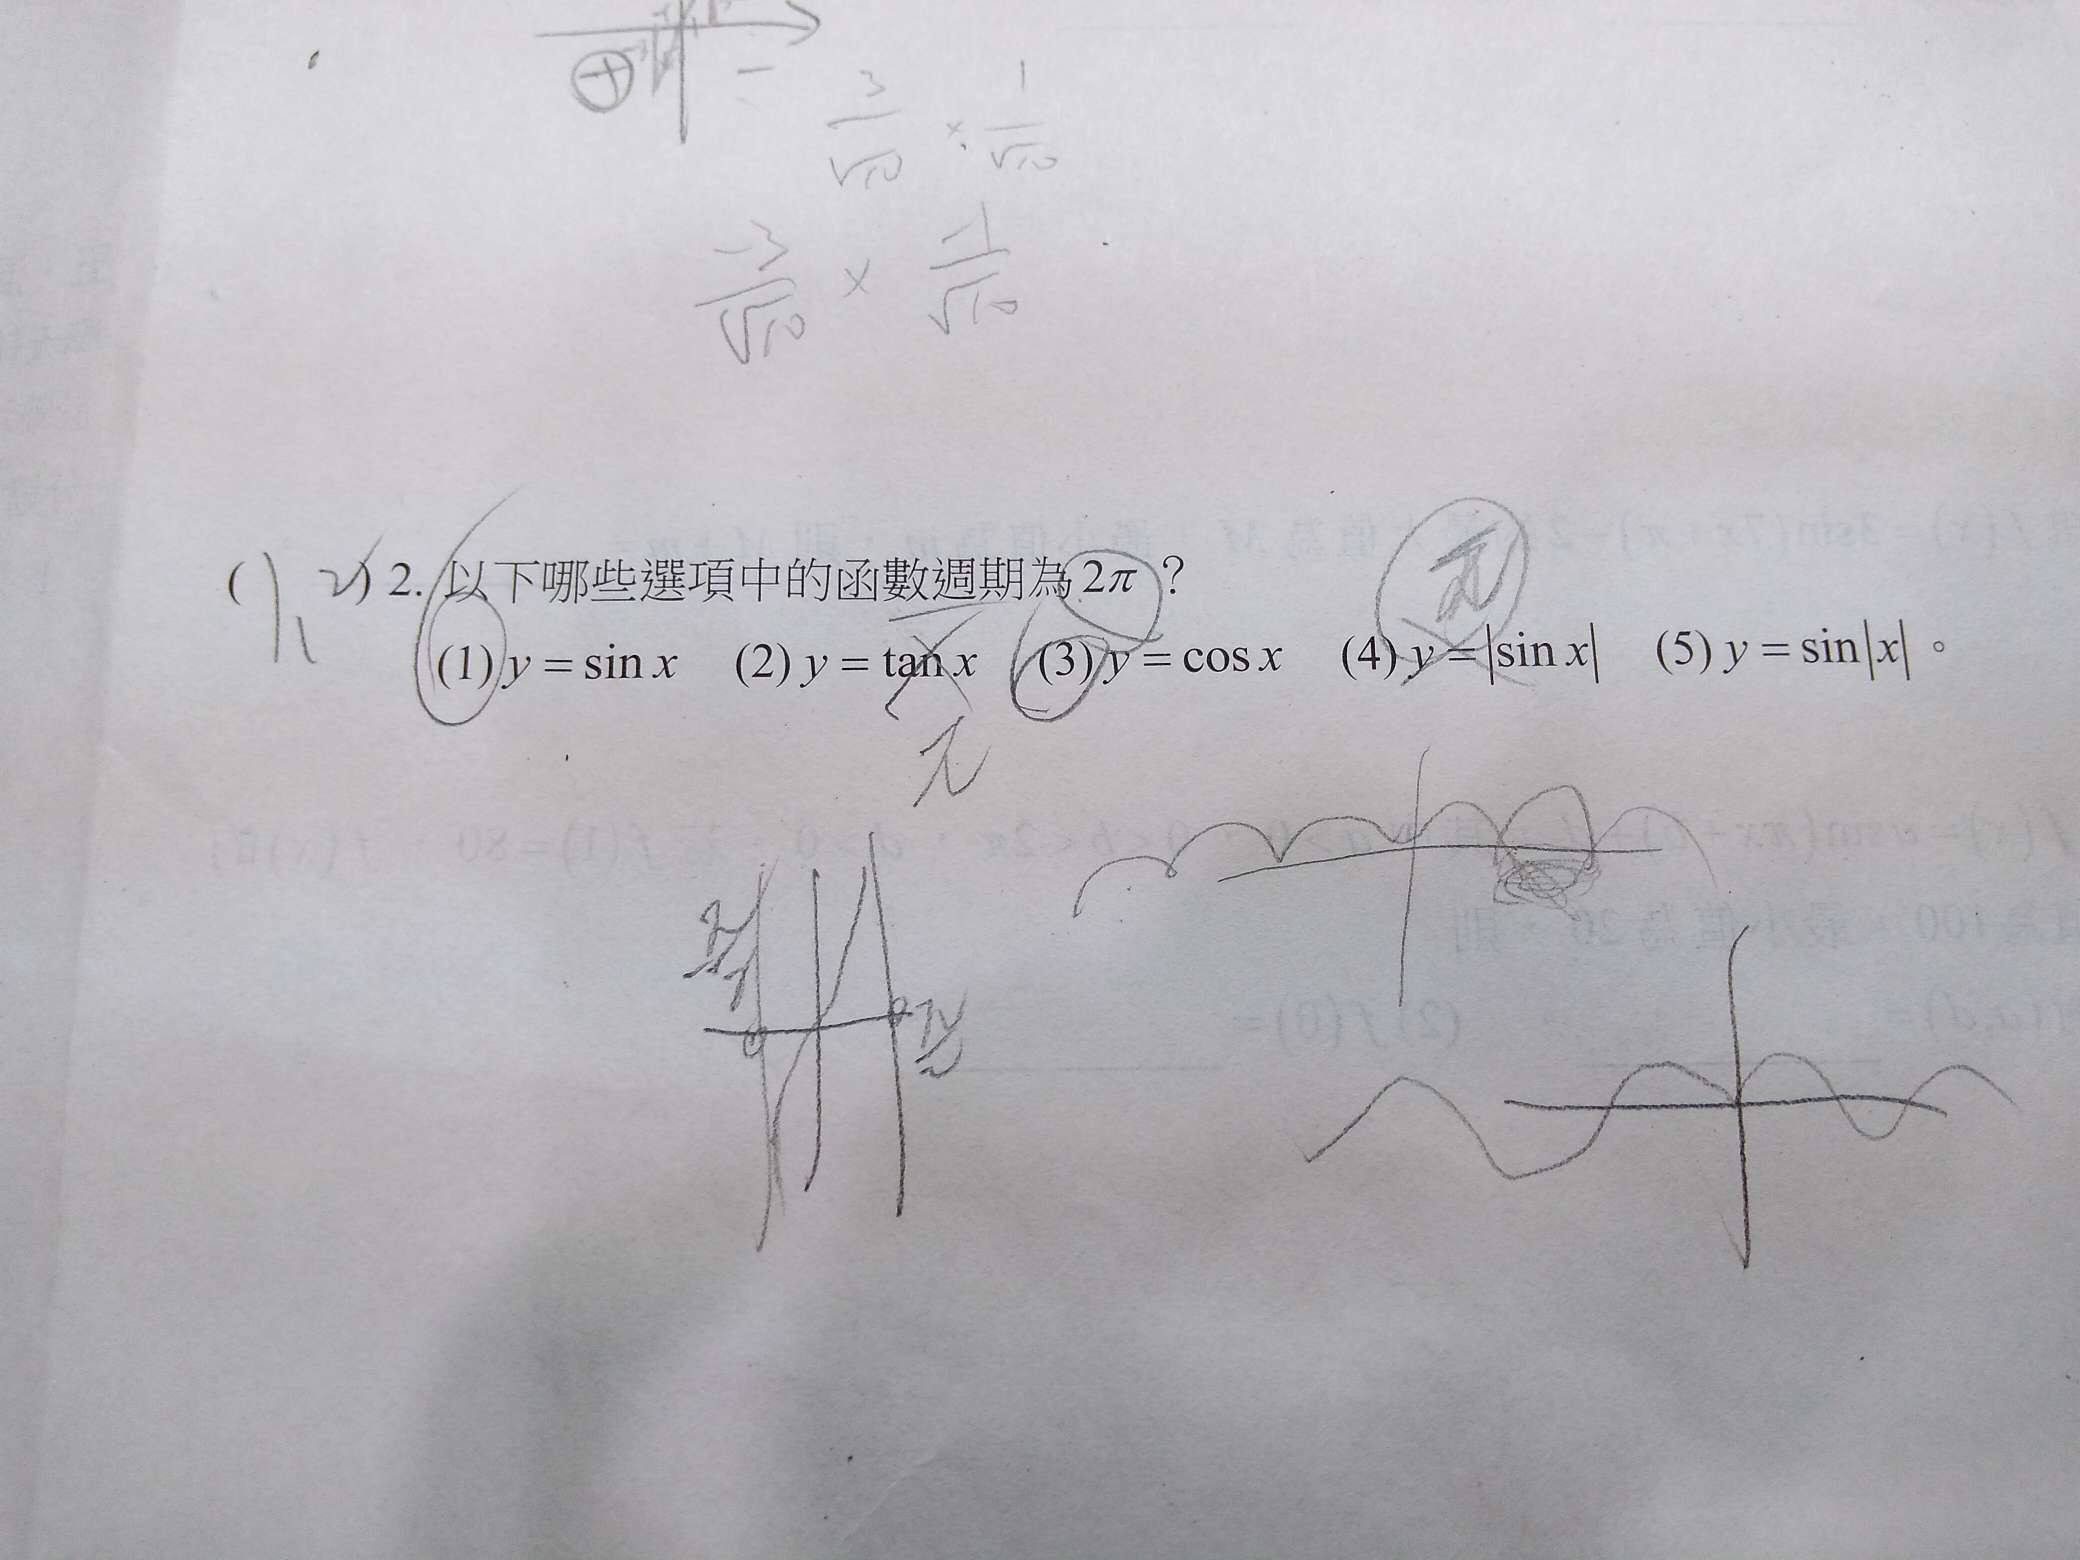 +
−
3/√10 × 1/√10
−3/√10 × −1/√10
(1, 2) 2. 以下哪些選項中的函數週期為 2π ?
π
(1) y = sin x (2) y = tan x (3) y = cos x (4) y = |sin x| (5) y = sin|x| 。
π